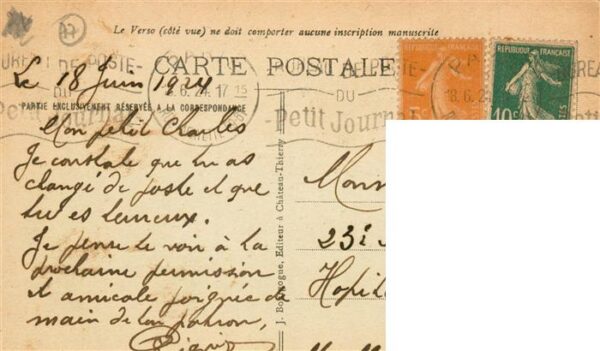 77
Le Verso (côté vue) ne doit comporter aucune inscription manuscrite
BUREAU DE POSTE-
Le 18 Juin 1924
CARTE POSTALE
17 15
DU
Petit Journal
PARTIE EXCLUSIVEMENT RÉSERVÉE A LA CORRESPONDANCE
REPUBLIQUE FRANÇAISE
5c
REPUBLIQUE FRANÇAISE
10c
POSTES
Mon petit Charles
Je constate que tu as
changé de poste et que
tu es heureux.
Je pense te voir à la
prochaine permission
et amicale poignée de
main de ton patron,
J. Bourgogne, Editeur à Château-Thierry
23è
Hopi